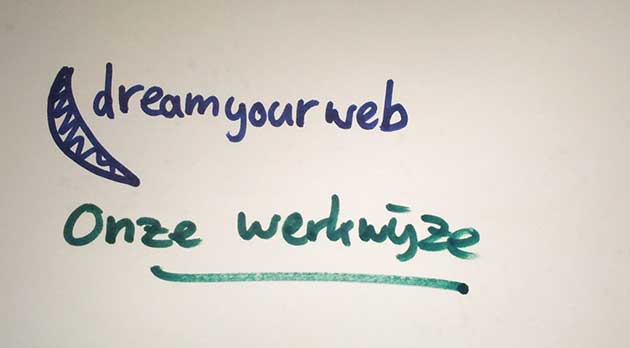 dreamyourweb
Onze werkwijze